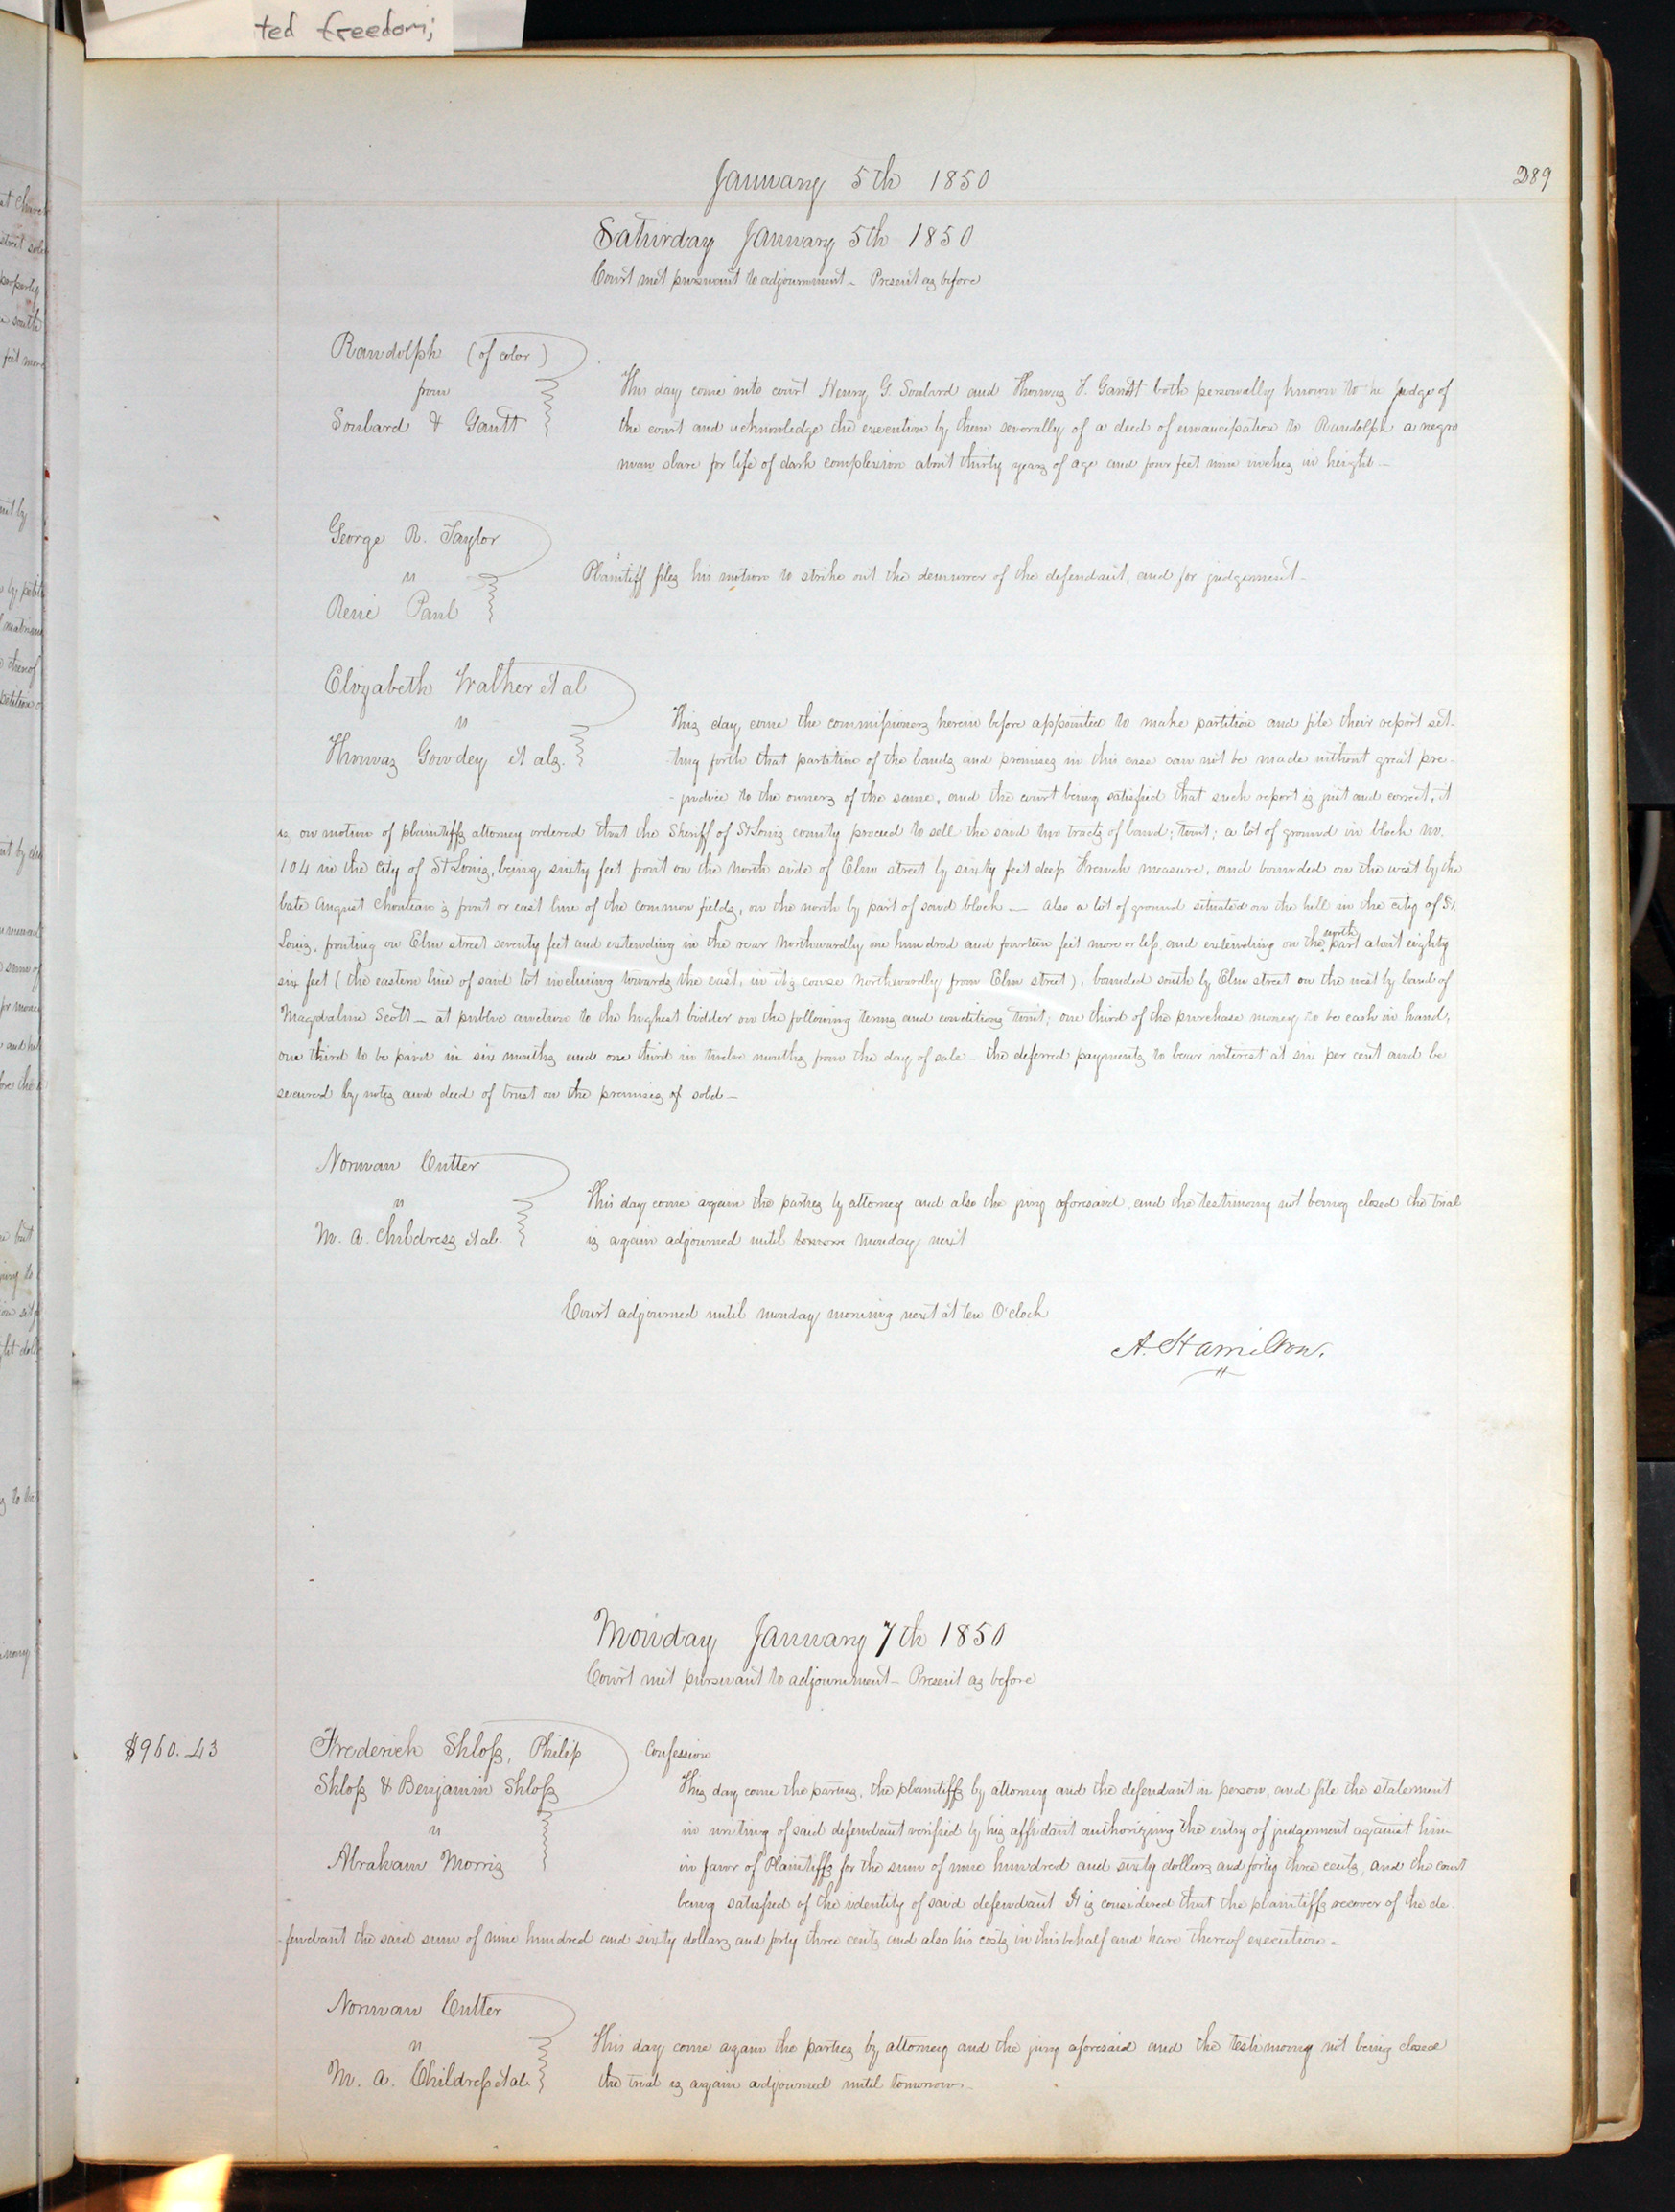 ted freedom;
January 5th 1850
289
Saturday January 5th 1850
Court met pursuant to adjournment - Present as before
Randolph (of color)
from
Soulard & Gantt
This day come into court Henry G. Soulard and Thomas T. Gantt both personally known to the Judge of
the court and acknowledge the execution by them severally of a deed of emancipation to Randolph a negro
man slave for life of dark complexion about thirty years of age and four feet nine inches in height -
George R. Taylor
vs
René Paul
Plaintiff files his motion to strike out the demurrer of the defendant, and for judgement -
Elizabeth Walker et al
vs
Thomas Gowdey et als.
This day come the commissioners herein before appointed to make partition and file their report set-
ting forth that partition of the lands and premises in this case can not be made without great pre-
-judice to the owners of the same, and the court being satisfied that such report is just and correct, it
is on motion of plaintiffs attorney ordered that the Sheriff of St Louis county proceed to sell the said two tracts of land; towit; a lot of ground in block no.
104 in the City of St Louis, being sixty feet front on the north side of Elm street by sixty feet deep French measure, and bounded on the west by the
late August Chouteau's front or east line of the common fields, on the north by part of said block - Also a lot of ground situated on the hill in the city of St.
Louis, fronting on Elm street seventy feet and extending in the rear northwardly one hundred and fourteen feet more or less, and extending on the north part about eighty
six feet (the eastern line of said lot inclining towards the east, in its course northwardly from Elm street), bounded south by Elm street on the west by land of
Magdaline Scott - at public auction to the highest bidder on the following terms and conditions towit; one third of the purchase money to be cash in hand,
one third to be paid in six months and one third in twelve months from the day of sale - the deferred payments to bear interest at six per cent and be
secured by notes and deed of trust on the premises of sold -
Norman Cutter
vs
M. A. Childress et al.
This day come again the parties by attorney and also the jury aforesaid, and the testimony not being closed the trial
is again adjourned until Monday next
Court adjourned until monday morning next at ten O'clock
A. Hamilton.
Monday January 7th 1850
Court met pursuant to adjournment - Present as before
$960.43
Frederick Shloss, Philip
Shloss & Benjamin Shloss
vs
Abraham Morris
Confession
This day come the parties, the plaintiffs by attorney and the defendant in person, and file the statement
in writing of said defendant verified by his affidavit authorizing the entry of judgement against him
in favor of Plaintiffs for the sum of nine hundred and sixty dollars and forty three cents, and the court
being satisfied of the identity of said defendant It is considered that the plaintiffs recover of the de-
-fendant the said sum of nine hundred and sixty dollars and forty three cents and also his costs in this behalf and have thereof execution -
Norman Cutter
vs
M. A. Childress et al
This day come again the parties by attorney and the jury aforesaid and the testimony not being closed
the trial is again adjourned until tomorrow -